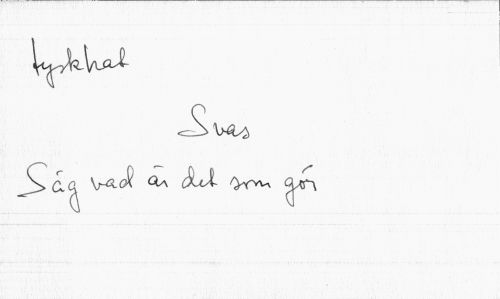 tyskhat
Svas
Säg vad är det som gör